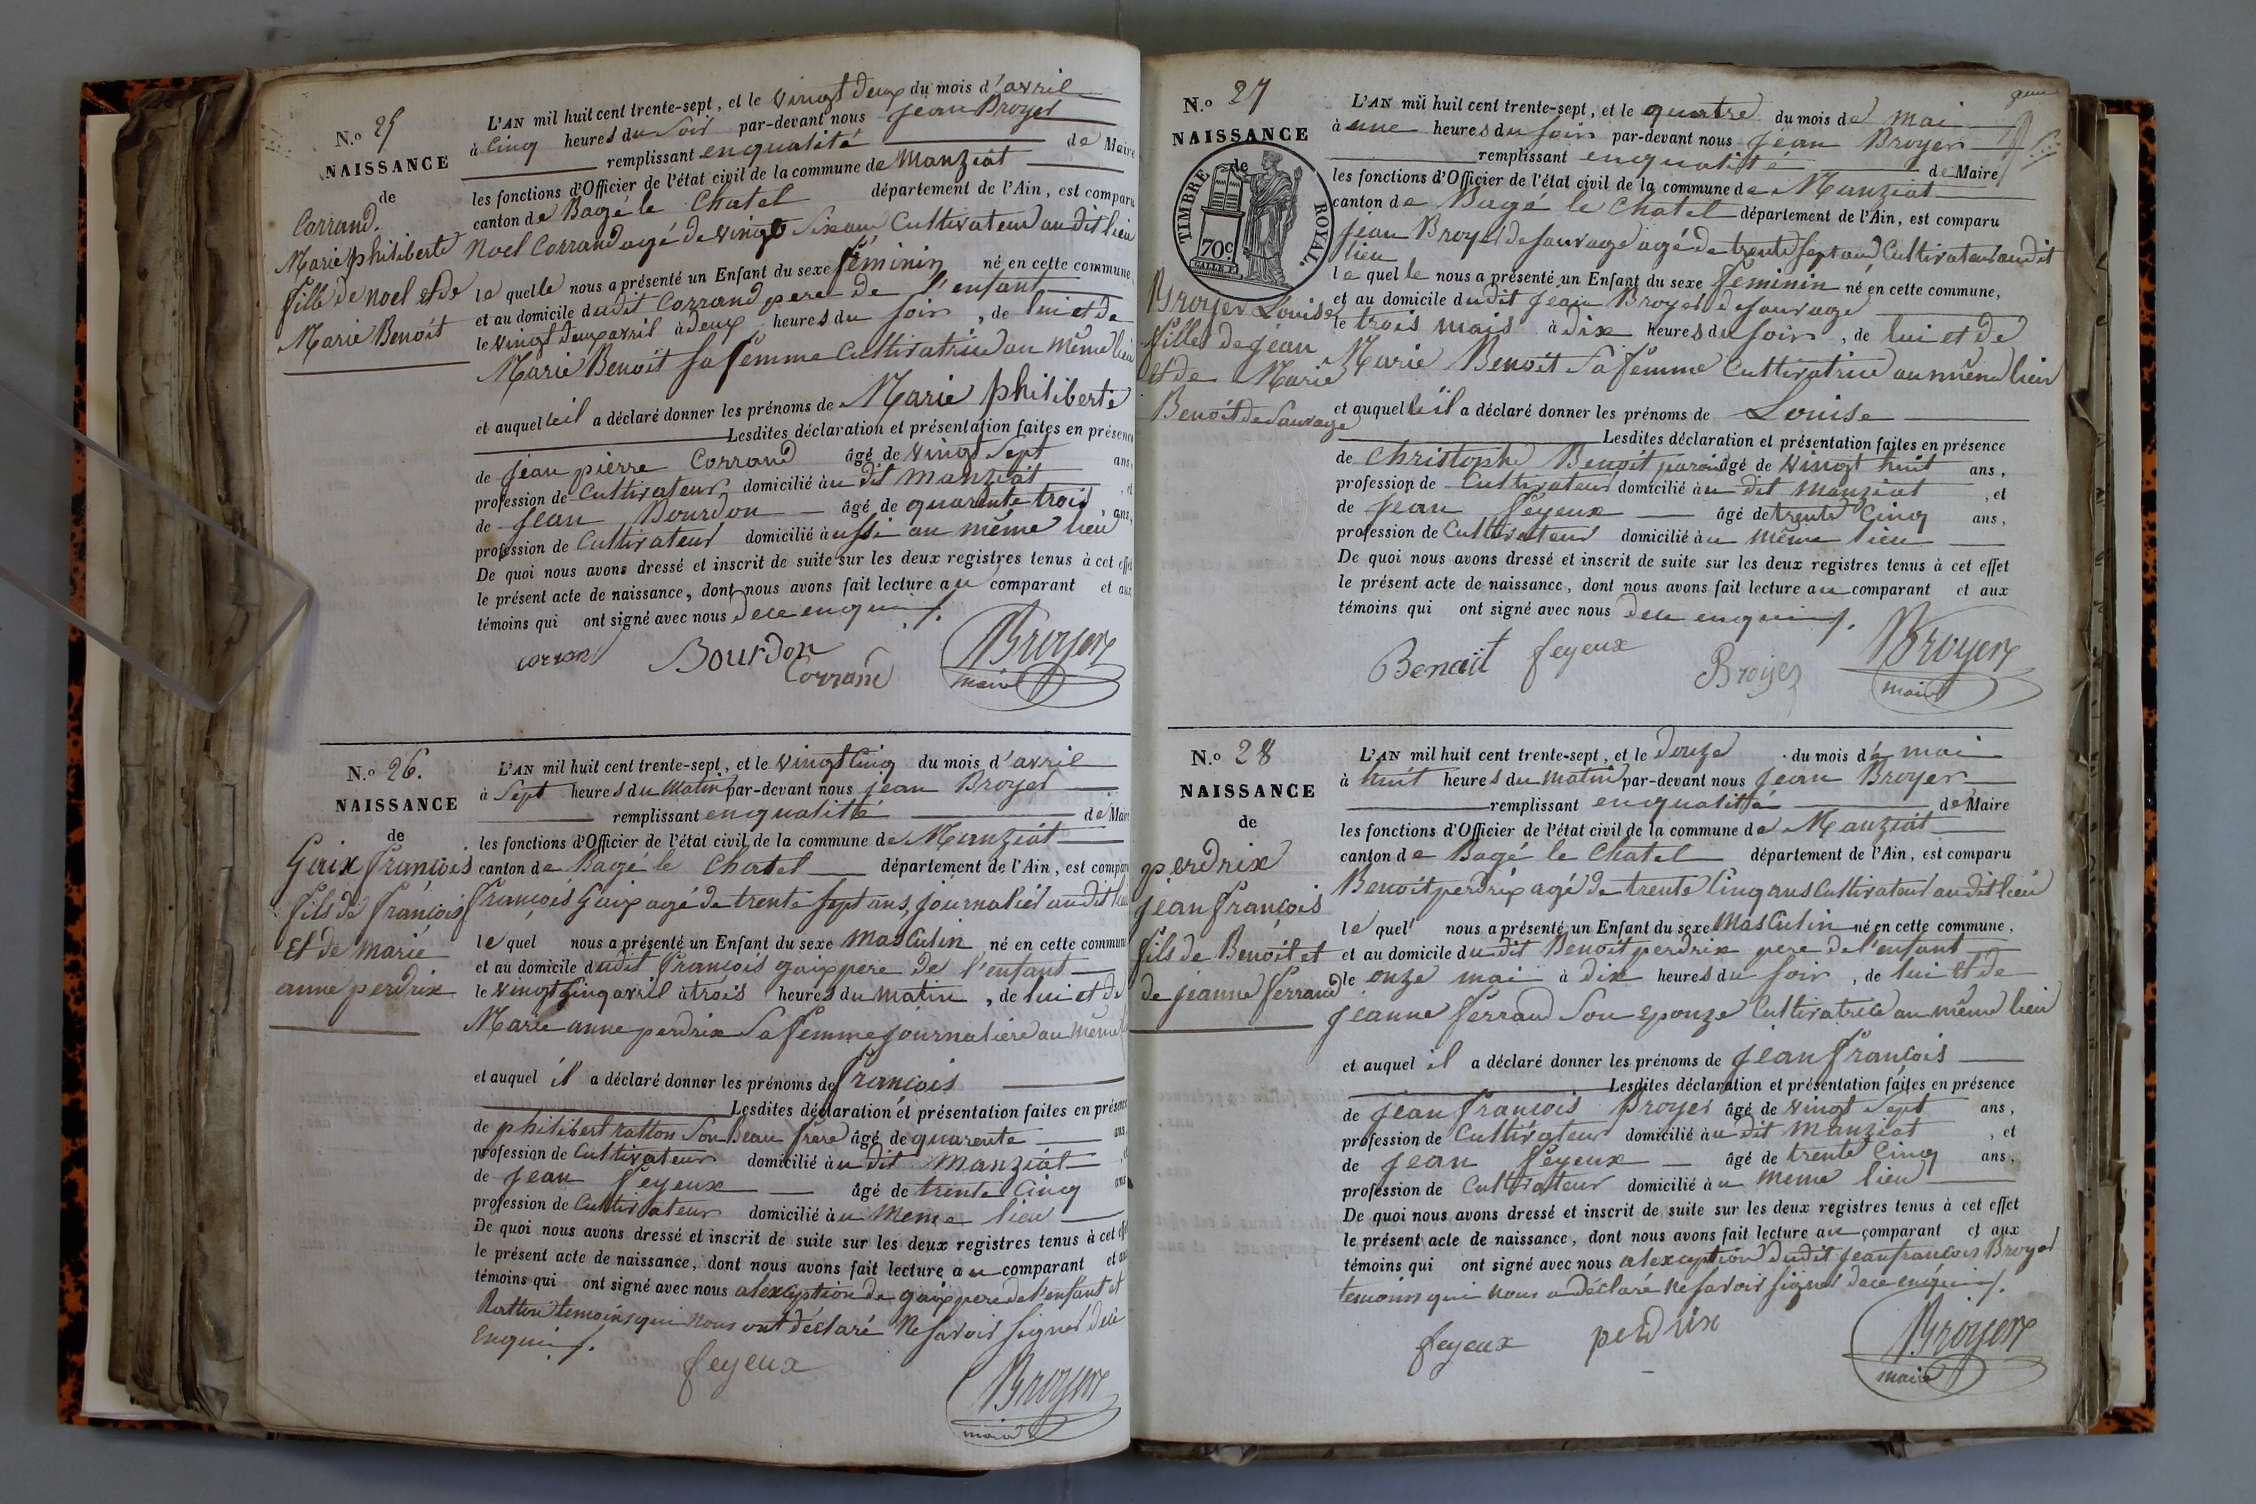 N.o 25
NAISSANCE
de
Corrand.
Marie philiberte
fille de noel et de
Marie Benoit
L'AN mil huit cent trente-sept, et le vingt deux du mois d'avril
à cinq heures du soir par-devant nous jean Broyer
remplissant en qualité de Maire
les fonctions d'Officier de l'état civil de la commune de Manziat
canton de Bagé le Chatel département de l'Ain, est comparu
Noel Corrand agé de vingt six ans Cultivateur au dit lieu
le quel le nous a présenté un Enfant du sexe féminin né en cette commune,
et au domicile dudit Corrand pere de l'enfant
le vingt deux avril à deux heures du soir, de lui et de
Marie Benoit sa femme Cultivatrice au même lieu
et auquel le il a déclaré donner les prénoms de Marie philiberte
Lesdites déclaration et présentation faites en présence
de jean pierre Corrand âgé de vingt sept ans,
profession de Cultivateur domicilié au dit manziat, et
de jean Bourdon âgé de quarente trois ans,
profession de Cultivateur domicilié aussi au même lieu
De quoi nous avons dressé et inscrit de suite sur les deux registres tenus à cet effet
le présent acte de naissance, dont nous avons fait lecture au comparant et aux
témoins qui ont signé avec nous de ce enquis.
corrand Bourdon
Corrand
Broyer
maire
N.o 26.
NAISSANCE
de
Gaix françois
fils de françois
Et de marie
anne perdrix
L'AN mil huit cent trente-sept, et le vingt Cinq du mois d'avril
à Sept heures du matin par-devant nous jean Broyer
remplissant en qualitté de Maire
les fonctions d'Officier de l'état civil de la commune de Manziat
canton de Bagé le Chatel département de l'Ain, est comparu
françois Gaix agé de trente sept ans, journalier au dit lieu
le quel nous a présenté un Enfant du sexe masculin né en cette commune
et au domicile dudit françois gaix pere de l'enfant
le vingt Cinq avril à trois heures du matin, de lui et de
Marie anne perdrix sa femme journalière au même
et auquel il a déclaré donner les prénoms de françois
Lesdites déclaration et présentation faites en présence
de philibert ratton son beau frère âgé de quarente ans,
profession de Cultivateur domicilié au dit manziat
de jean feyeux âgé de trente Cinq ans
profession de Cultivateur domicilié au meme lieu
De quoi nous avons dressé et inscrit de suite sur les deux registres tenus à cet effet
le présent acte de naissance, dont nous avons fait lecture au comparant et aux
témoins qui ont signé avec nous alexception de gaix pere de l'enfant et
Ratton temoins qui nous ont déclaré ne savoir signer de ce
Enquis.
feyeux
Broyer
maire
N.o 27
NAISSANCE
de
TIMBRE ROYAL.
70c.
Broyer Louise
fille de jean
et de Marie
Benoit de Sauvage
L'AN mil huit cent trente-sept, et le quatre du mois de mai
à une heures du soir par-devant nous jean Broyer
remplissant en qualitté de Maire
les fonctions d'Officier de l'état civil de la commune de Manziat
canton de Bagé le Chatel département de l'Ain, est comparu
jean Broyer de sauvage agé de trente sept ans Cultivateur au dit
lieu
le quel le nous a présenté un Enfant du sexe feminin né en cette commune,
et au domicile dudit jean Broyer de sauvage
le trois mais à dix heures du soir, de lui et de
Marie Benoit sa femme Cultivatrice au même lieu
et auquel le il a déclaré donner les prénoms de Louise
Lesdites déclaration et présentation faites en présence
de Christophe Benoit âgé de vingt huit ans,
profession de Cultivateur domicilié au dit manziat, et
de jean feyeux âgé de trente Cinq ans,
profession de Cultivateur domicilié au même lieu
De quoi nous avons dressé et inscrit de suite sur les deux registres tenus à cet effet
le présent acte de naissance, dont nous avons fait lecture au comparant et aux
témoins qui ont signé avec nous de ce enquis.
Benoit feyeux Broyer
Broyer
maire
N.o 28
NAISSANCE
de
perdrix
jean françois
fils de Benoit et
de jeanne ferrand
L'AN mil huit cent trente-sept, et le douze du mois de mai
à huit heures du matin par-devant nous jean Broyer
remplissant en qualitté de Maire
les fonctions d'Officier de l'état civil de la commune de Manziat
canton de Bagé le Chatel département de l'Ain, est comparu
Benoit perdrix agé de trente Cinq ans Cultivateur au dit lieu
le quel nous a présenté un Enfant du sexe masculin né en cette commune,
et au domicile dudit Benoit perdrix pere de l'enfant
le onze mai à dix heures du soir, de lui et de
jeanne ferrand son eponze Cultivatrice au même lieu
et auquel il a déclaré donner les prénoms de jean françois
Lesdites déclaration et présentation faites en présence
de jean françois Broyer âgé de vingt sept ans,
profession de Cultivateur domicilié au dit manziat, et
de jean feyeux âgé de trente Cinq ans,
profession de Cultivateur domicilié au meme lieu
De quoi nous avons dressé et inscrit de suite sur les deux registres tenus à cet effet
le présent acte de naissance, dont nous avons fait lecture au comparant et aux
témoins qui ont signé avec nous alexception dudit jean françois Broyer
temoins qui nous a déclaré ne savoir signer de ce enquis.
feyeux perdrix
Broyer
maire